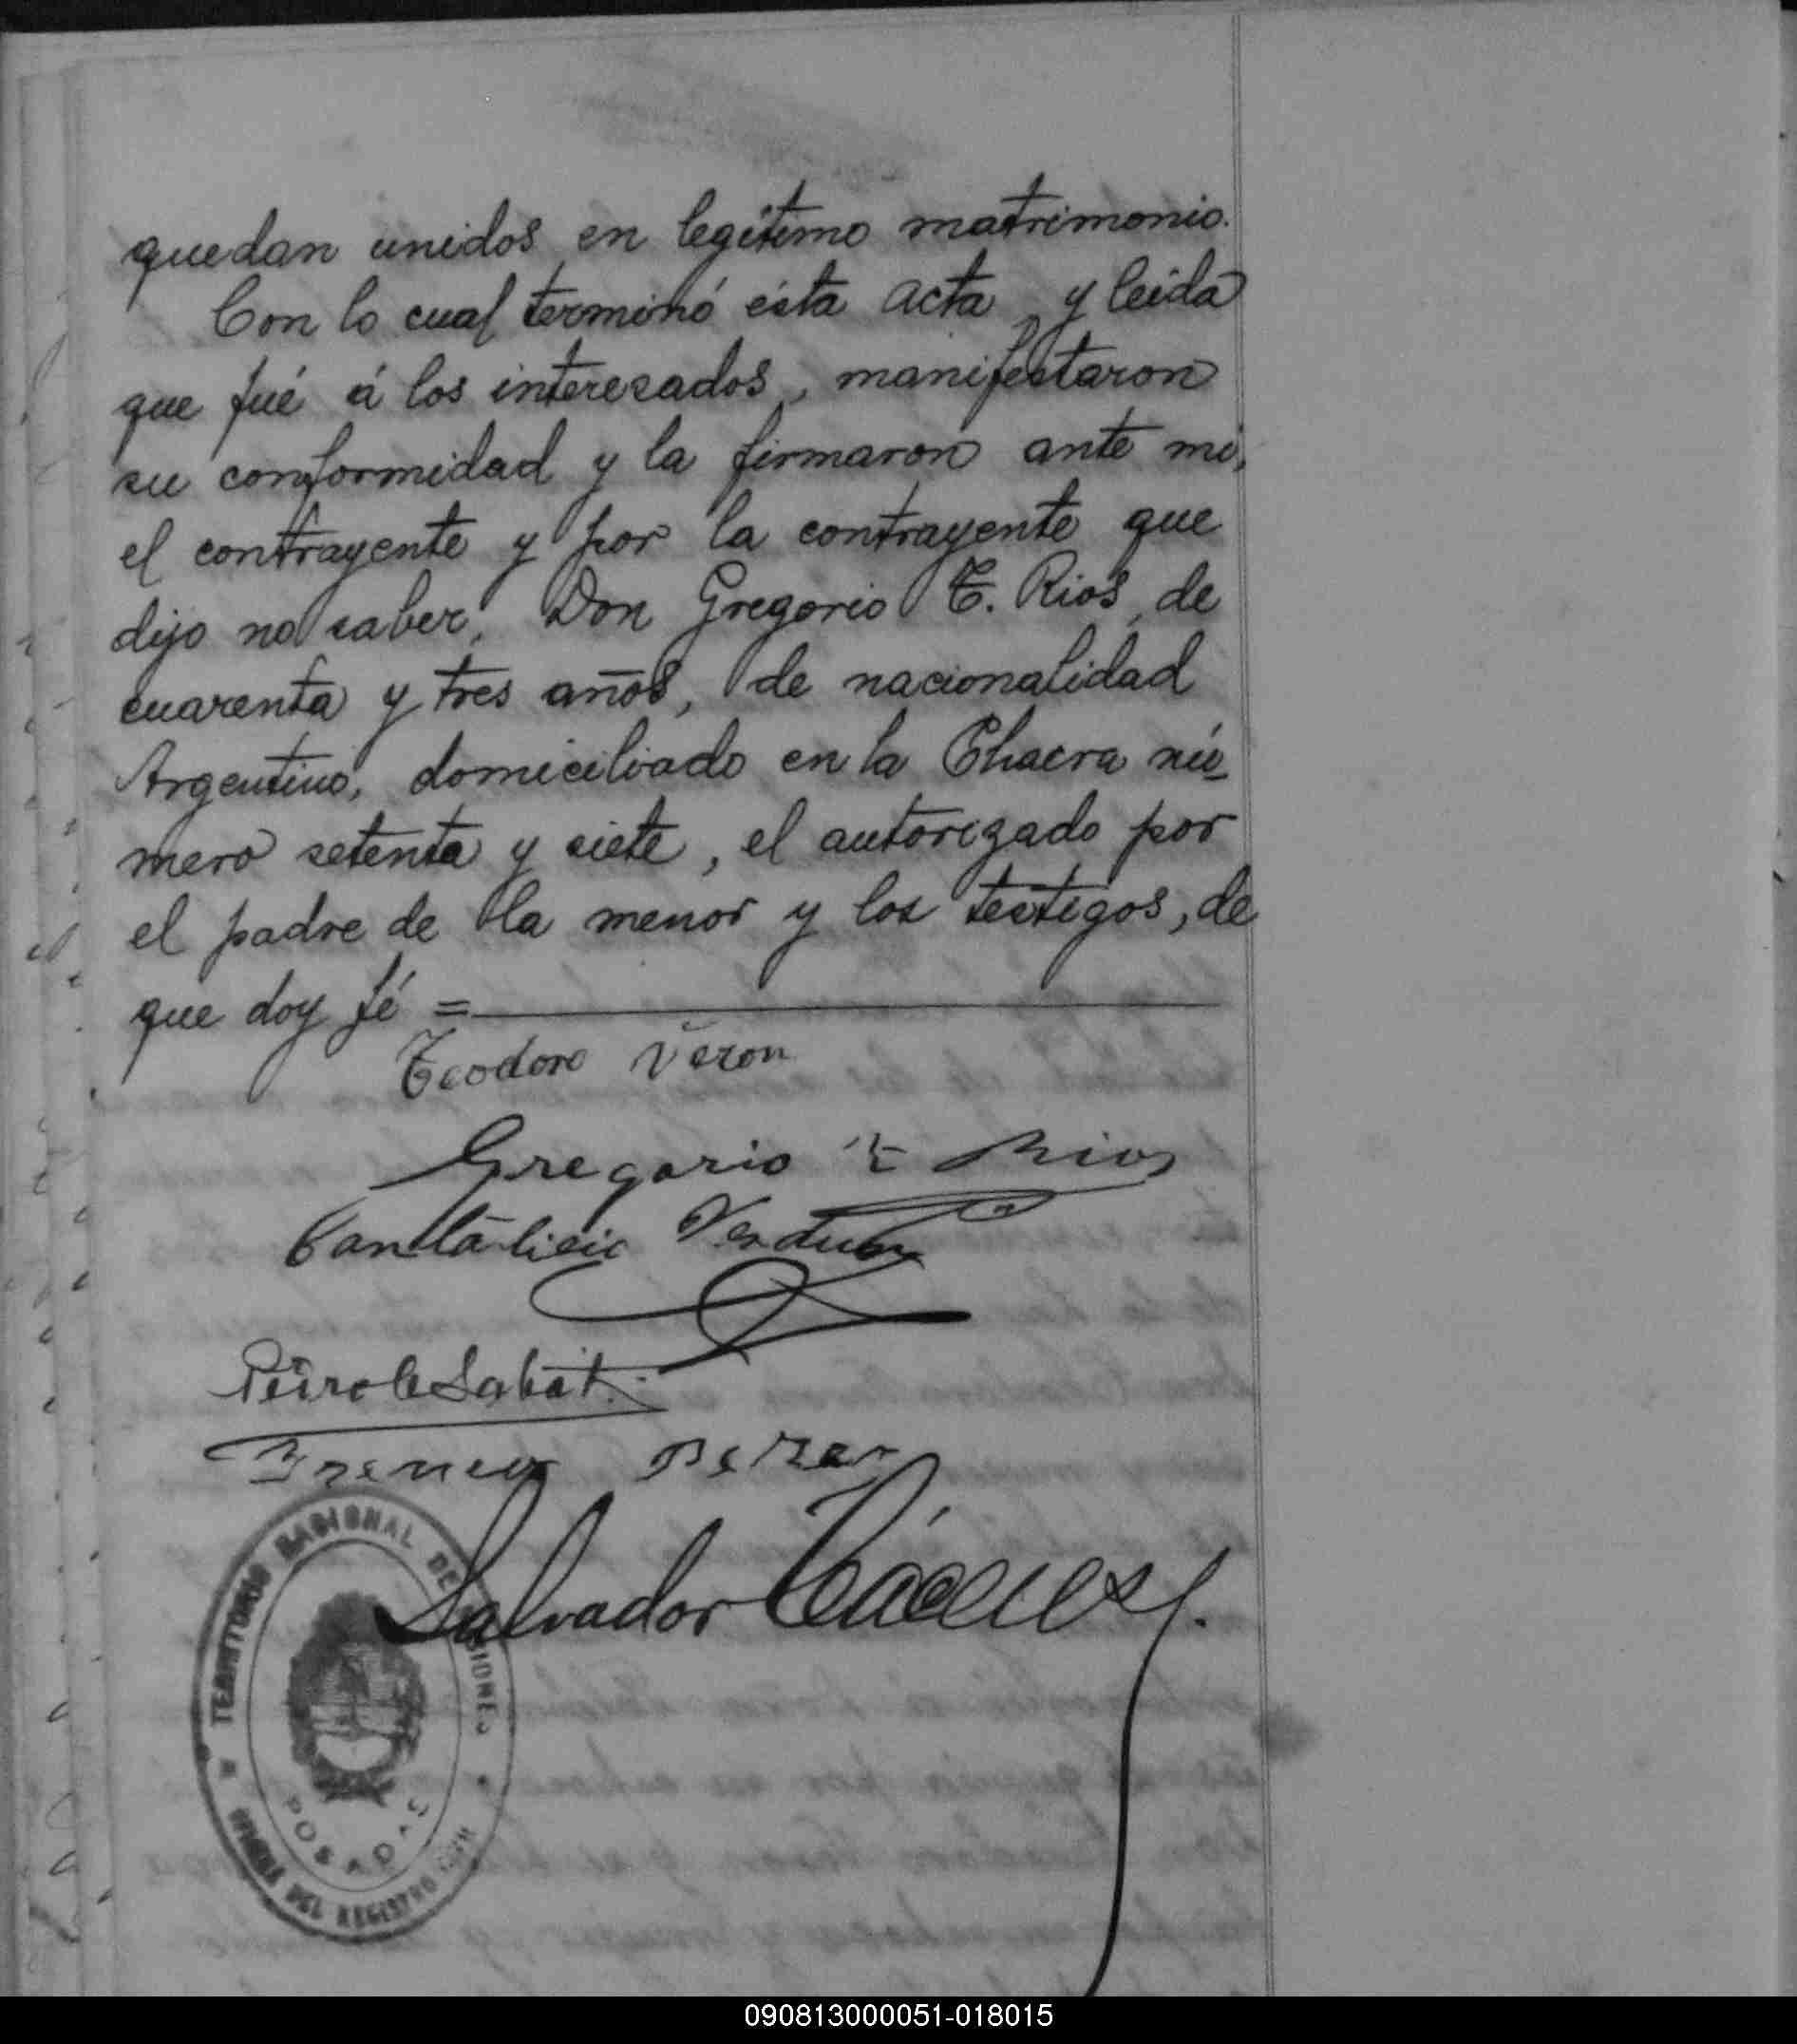 quedan unidos en legítimo matrimonio.
Con lo cual terminó ésta acta, y leída
que fué á los interesados, manifestaron
su conformidad y la firmaron ante mí,
el contrayente y por la contrayente que
dijo no saber, Don Gregorio T. Rios, de
cuarenta y tres años, de nacionalidad
Argentino, domiciliado en la Chacra nú-
mero setenta y siete, el autorizado por
el padre de la menor y los testigos, de
que doy fé =
Teodoro Veron
Gregorio T Rios
Cantalicio Verdun
Pedro C Sabat.
Ireneo Perez
Salvador
TERRITORIO NACIONAL DE MISIONES
POSADAS
DEL REGISTRO CIVIL
090813000051-018015